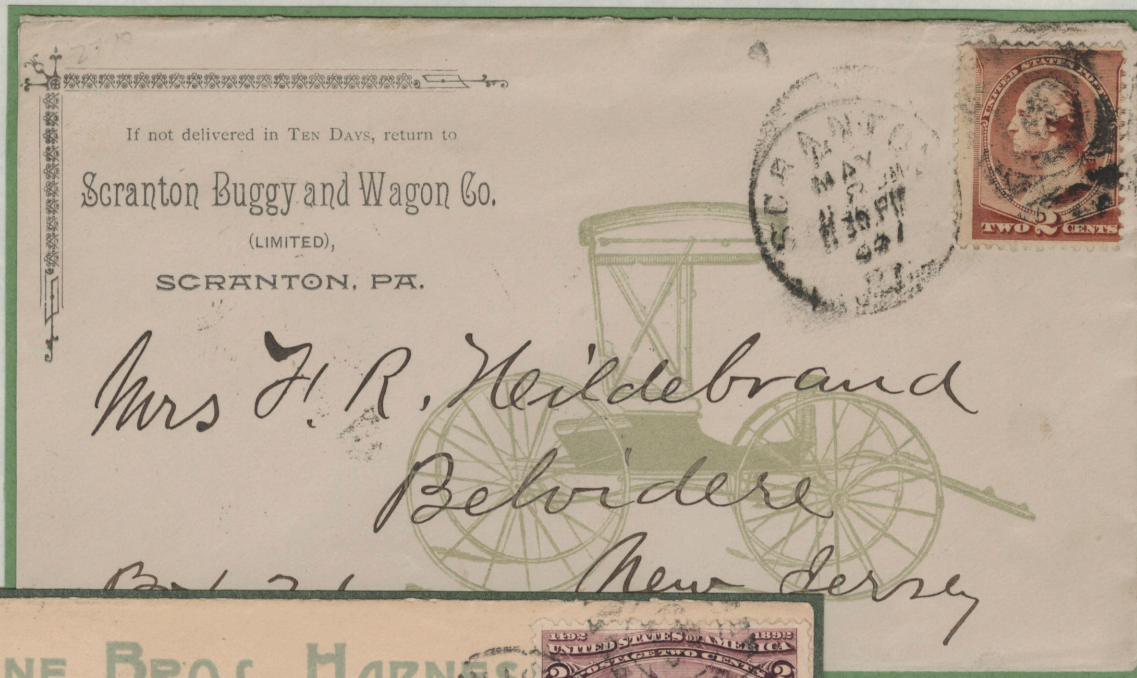 If not delivered in TEN DAYS, return to
Scranton Buggy and Wagon Co.
(LIMITED),
SCRANTON, PA.
SCRANTON
MAY
30 PM
UNITED STATES
TWO 2 CENTS
Mrs H. R. Heildebrand
Belvidere
New Jersey
BROS HARNES
1492 1892
UNITED STATES OF AMERICA
POSTAGE TWO CENTS
2 2